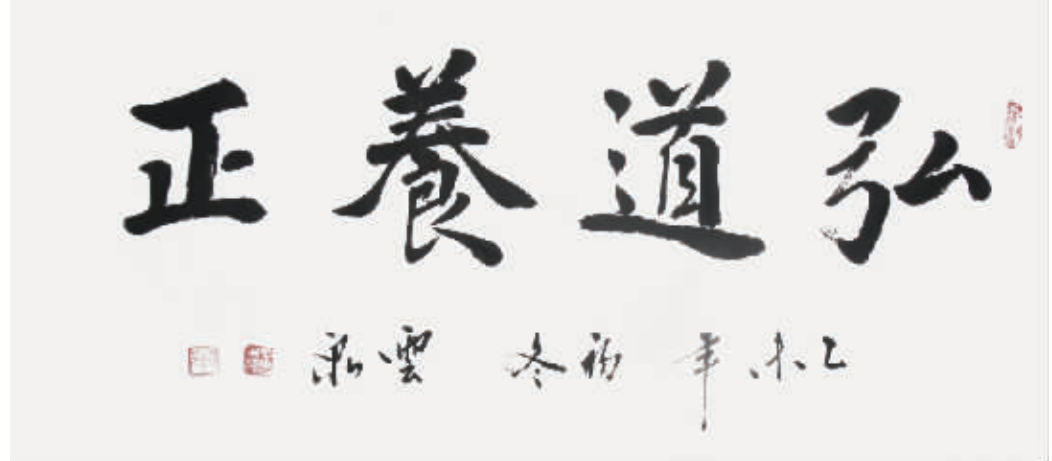 弘道養正
乙未年初冬 雲